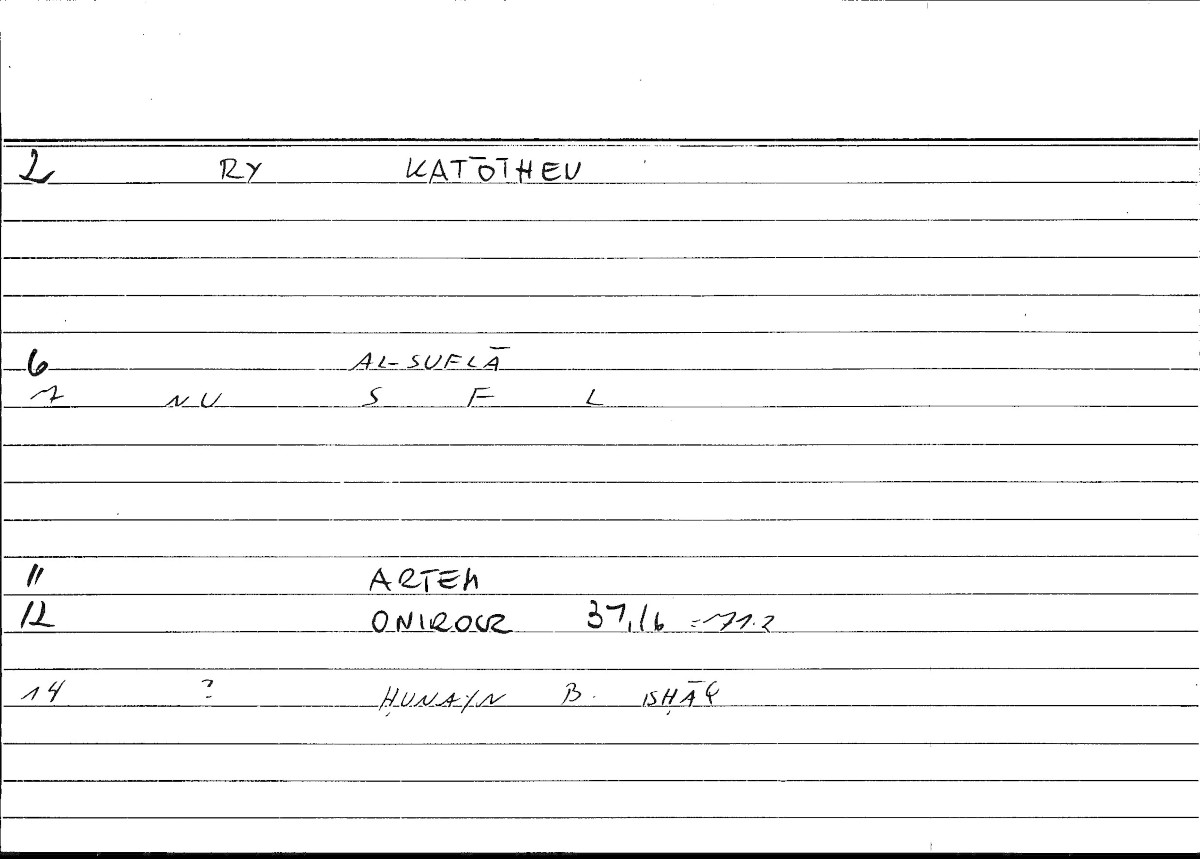 2 RY KATŌTHEN
6 AL-SUFLĀ
7 NU S F L
11 ARTEM
12 ONIROCR 37,16 =71.2
14 ? ḤUNAYN B. ISḤĀQ